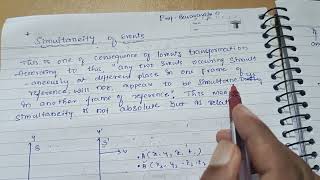 Simultaneity of Events
This is one of consequence of lorentz transformation
According to this, "any two Events occuring Simult
aneously at different place in one frame
reference, will not appear to be simultaneously
in another frame of reference". This
simultaneity is not absolute but is
y y'
S S'
→v
• A(x, y, z, t,)